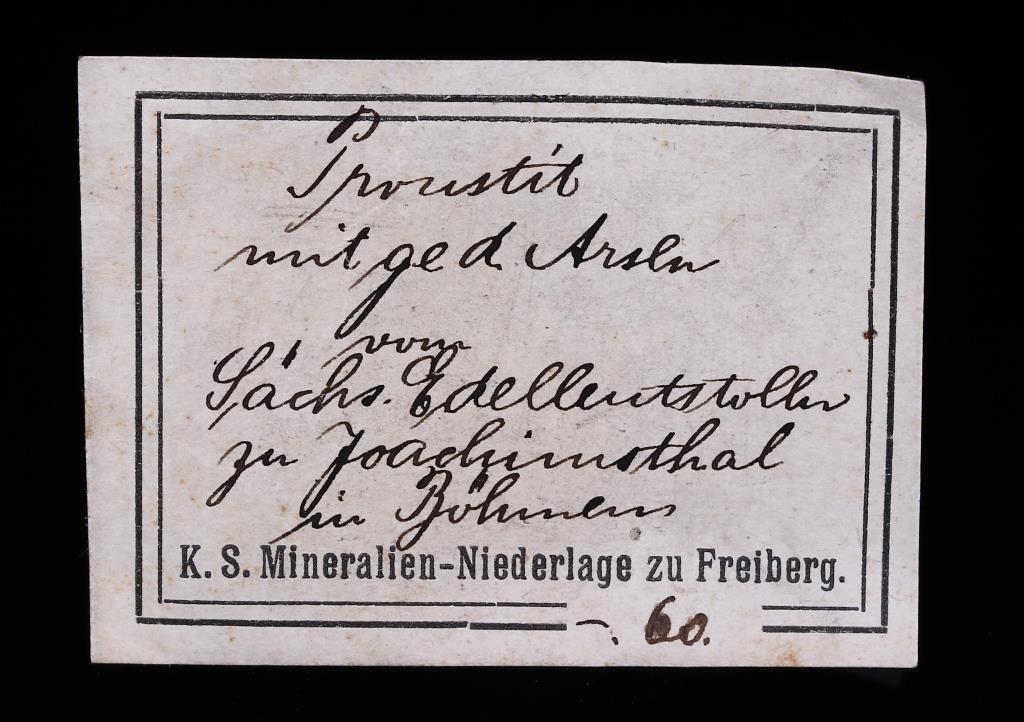 Proustit
mit ged. Arsen
vom
Sächs. Edelleutstolln
zu Joachimsthal
in Böhmen
K. S. Mineralien-Niederlage zu Freiberg.
–. 60.